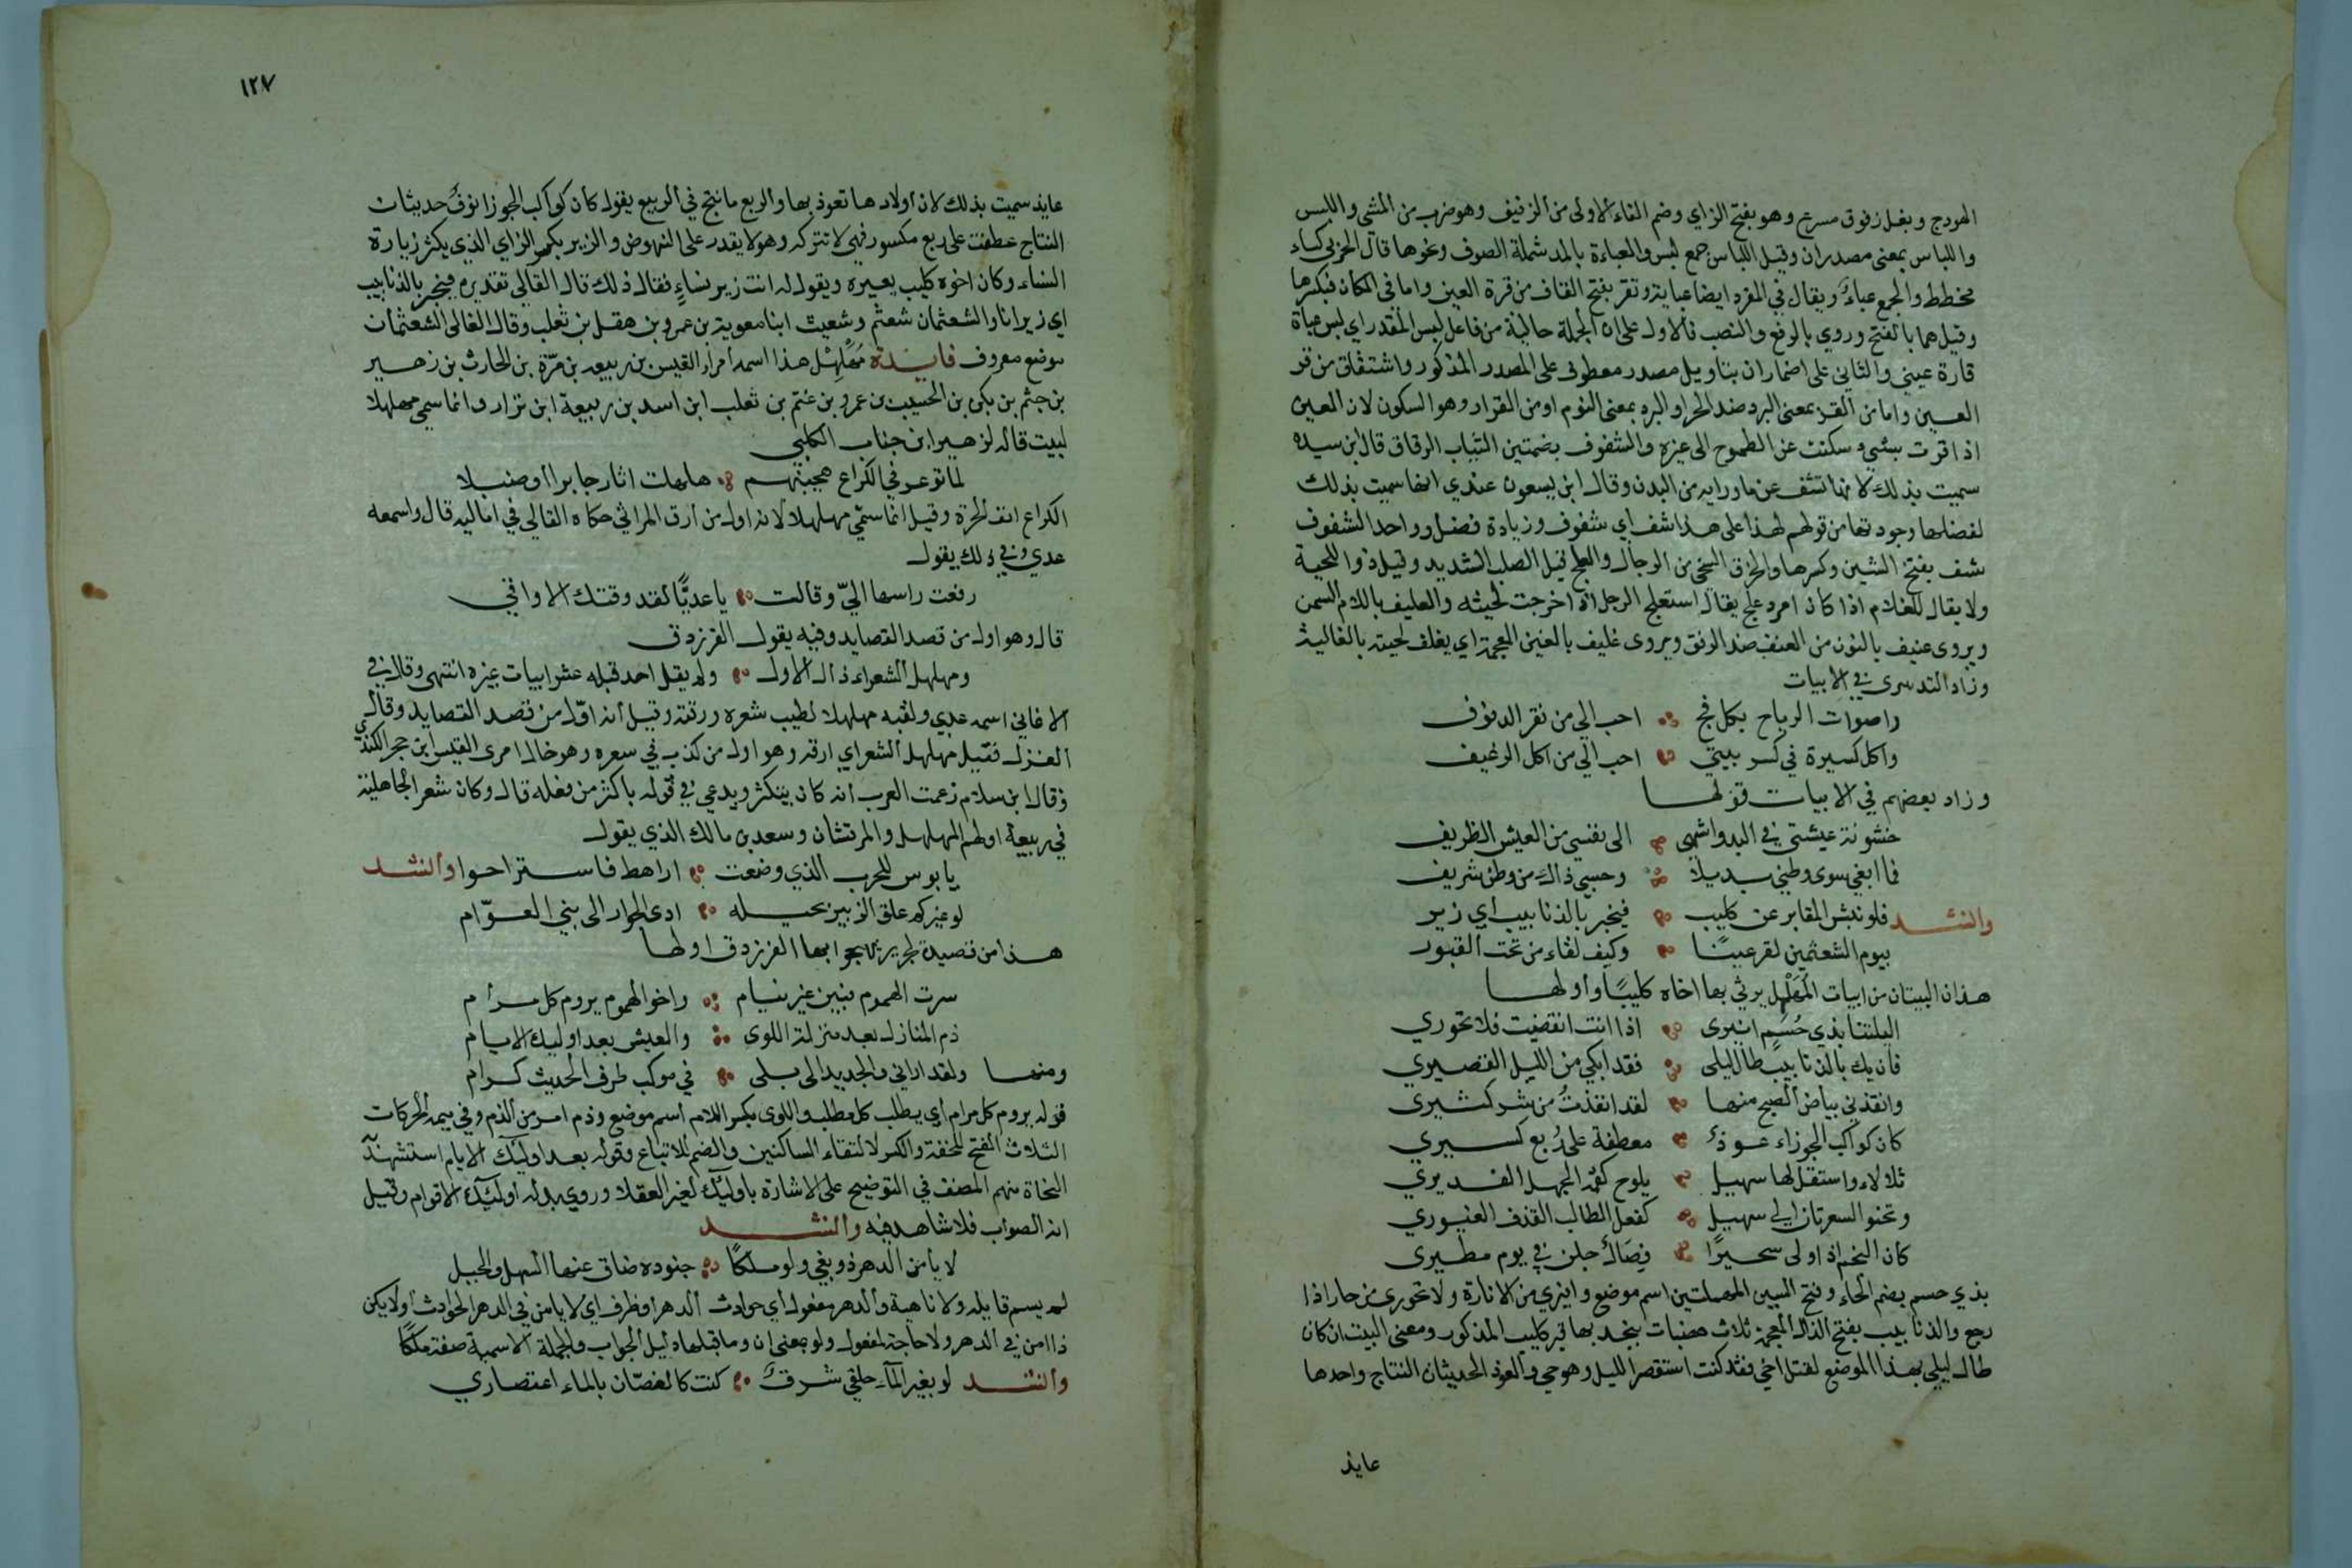 الهودج وبغل زفوف مسرع وهو بفتح الزاي وضم الفاء الاولى من الزفيف وهو ضرب من المشي واللبس
واللباس بمعنى مصدران وقيل اللباس جمع لبس والعباءة بالمد شملة الصوف ونحوها قال الحزبي كساء
مخطط والجمع عباء ويقال في المفرد ايضا عباية وتقر بفتح القاف من قرة العين واما في المكان فبكسرها
وقيل هما بالفتح وروي بالرفع والنصب فالاول على ان الجملة حالية من فاعل لبس المقدر اي لبس عباة
قارة عيني والثاني على اضمار ان بتاويل مصدر معطوف على المصدر المذكور واشتقاق من قر
العين واما من القر بمعنى البرد ضد الحر او البرد بمعنى النوم او من القرار وهو السكون لان العين
اذا قرت بشيء سكنت عن الطموح الى غيره والشفوف بضمتين الثياب الرقاق قال ابن سيده
سميت بذلك لانها تشف عن ما ورايه من البدن وقال ابن يسعون عندي انها سميت بذلك
لفضلها وجودتها من قولهم لهذا على هذا شف اي شفوف وزيادة فضل وواحد الشفوف
شف بفتح الشين وكسرها والخرق السخي من الرجال والعلج قيل الصلب الشديد وقيل ذو اللحية
ولا يقال للغلام اذا كان امرد علج يقال استعلج الرجل اذا خرجت لحيته والعليف باللام السمن
ويروى عنيف بالنون من العنف ضد الرفق ويروى غليف بالغين المعجمة اي يغلف لحيته بالغالية
وزاد التدمرى في الابيات
واصوات الرياح بكل فج احب الي من نقر الدفوف
واكل كسيرة في كسر بيتي احب الي من اكل الرغيف
وزاد بعضهم في الابيات قولها
خشونة عيشتي في البدو اشهى الى نفسي من العيش الظريف
فما ابغي سوى وطني بديلا وحسبي ذاك من وطن شريف
وانشد فلو نبش المقابر عن كليب فيخبر بالذنايب اي زير
بيوم الشعثمين لقر عينا وكيف لقاء من تحت القبور
هذان البيتان من ابيات المهلهل يرثي بها اخاه كليبا واولها
اليلتنا بذي حسم انيرى اذا انت انقضيت فلا تحوري
فان يك بالذنايب طال ليلى فقد ابكي من الليل القصيري
وانقذني بياض الصبح منها لقد انقذت من شر كثيرى
كان كواكب الجوزاء عوذ معطفة على ربع كسيري
تلالاء واستقل لها سهيل يلوح كقمة الجمل الفديري
وتحنو الشعريان الى سهيل كفعل الطالب القذف الغيوري
كان النجم اذ اولى سحيرا فصال جلن في يوم مطيرى
بذي حسم بضم الحاء وفتح السين المهملتين اسم موضع وانيري من الانارة ولا تحورى من حار اذا
رجع والذنايب بفتح الذال المعجمة ثلاث هضبات بنجد بها قبر كليب المذكور ومعنى البيت ان كان
طال ليلي بهذا الموضع لقتل اخي فقد كنت استقصر الليل وهو حي والعوذ الحديثان النتاج واحدها
عايذ
١٢٧
عايذ سميت بذلك لان اولادها تعوذ بها والربع ما نتج في الربيع يقول كان كواكب الجوزا نوق حديثات
النتاج عطفت على ربع مكسور فهي لا تتركه وهو لا يقدر على النهوض والزير بكسر الزاي الذي يكثر زيارة
النساء وكان اخوه كليب يعيره ويقول له انت زير نساء فقال ذلك قال القالي تقديره فيخبر بالذنايب
اي زير انا والشعثمان شعثم وشعيث ابنا معوية بن عمرو بن عقل بن تغلب وقال الغالى الشعثمان
موضع معروف فايدة مهلهل هذا اسمه امرأ القيس بن ربيعه بن مرة بن الحارث بن زهير
بن جثم بن بكر بن الحبيب بن عمرو بن غنم بن تغلب ابن اسد بن ربيعة ابن نزار وانما سمي مهلهلا
لبيت قاله لزهير ابن جناب الكلبي
لما توعر في الكراع هجينهم هلهلت اثار جابرا او صنبلا
الكراع انف الحرة وقيل انما سمي مهلهلا لانه اول من ارق المراثي حكاه القالي في اماليه قال واسمه
عدي وفي ذلك يقول
رفعت راسها الي وقالت يا عديا لقد وقتك الاواقي
قال وهو اول من قصد القصايد وفيه يقول الفرزدق
ومهلهل الشعراء ذاك الاول ولم يقل احد قبله عشر ابيات غيره انتهى وقال في
الاغاني اسمه عدي ولقبه مهلهلا لطيب شعره ورقته وقيل انه اول من قصد القصايد وقال
الغزل فقيل مهلهل الشعر اي ارقه وهو اول من كذب في شعره وهو خال امرى القيس ابن حجر الكندي
وقال ابن سلام زعمت العرب انه كان يتكثر ويدعي في قوله باكثر من فعله قال وكان شعر الجاهلية
في ربيعة اولهم المهلهل والمرقشان وسعد بن مالك الذي يقول
يا بوس للحرب الذي وضعت اراهط فاستراحوا وانشد
لو غيركم علق الزبير بحبله ادى الجوار الى بني العوام
هذا من قصيدة لجرير يهجوا بها الفرزدق اولها
سرت الهموم فبتن غير نيام واخو الهموم يروم كل مرام
ذم المنازل بعد منزلة اللوى والعيش بعد اوليك الايام
ومنها ولقد اراني والجديد الى بلى في موكب طرف الحديث كرام
قوله يروم كل مرام اي يطلب كل مطلب واللوى بكسر اللام اسم موضع وذم امر من الذم وفي ميمه الحركات
الثلاث الفتح للخفة والكسر لالتقاء الساكنين والضم للاتباع وقوله بعد اوليك الايام استشهد
النحاة منهم المصنف في التوضيح على الاشارة باوليك لغير العقلا وروي بدله اوليك الاقوام وقيل
انه الصواب فلا شاهد فيه وانشد
لا يامن الدهر ذو بغي ولو ملكا جنوده ضاق عنها السهل والجبل
لم يسم قايله ولا ناهية والدهر مفعول اي حوادث الدهر او ظرف اي لا يامن في الدهر الحوادث او لا يكن
ذا امن في الدهر ولا حاجة لمفعول ولو بمعنى ان وما قبلها دليل الجواب والجملة الاسمية صفة ملكا
وانشد لو بغير الماء حلقي شرق كنت كالغصان بالماء اعتصاري